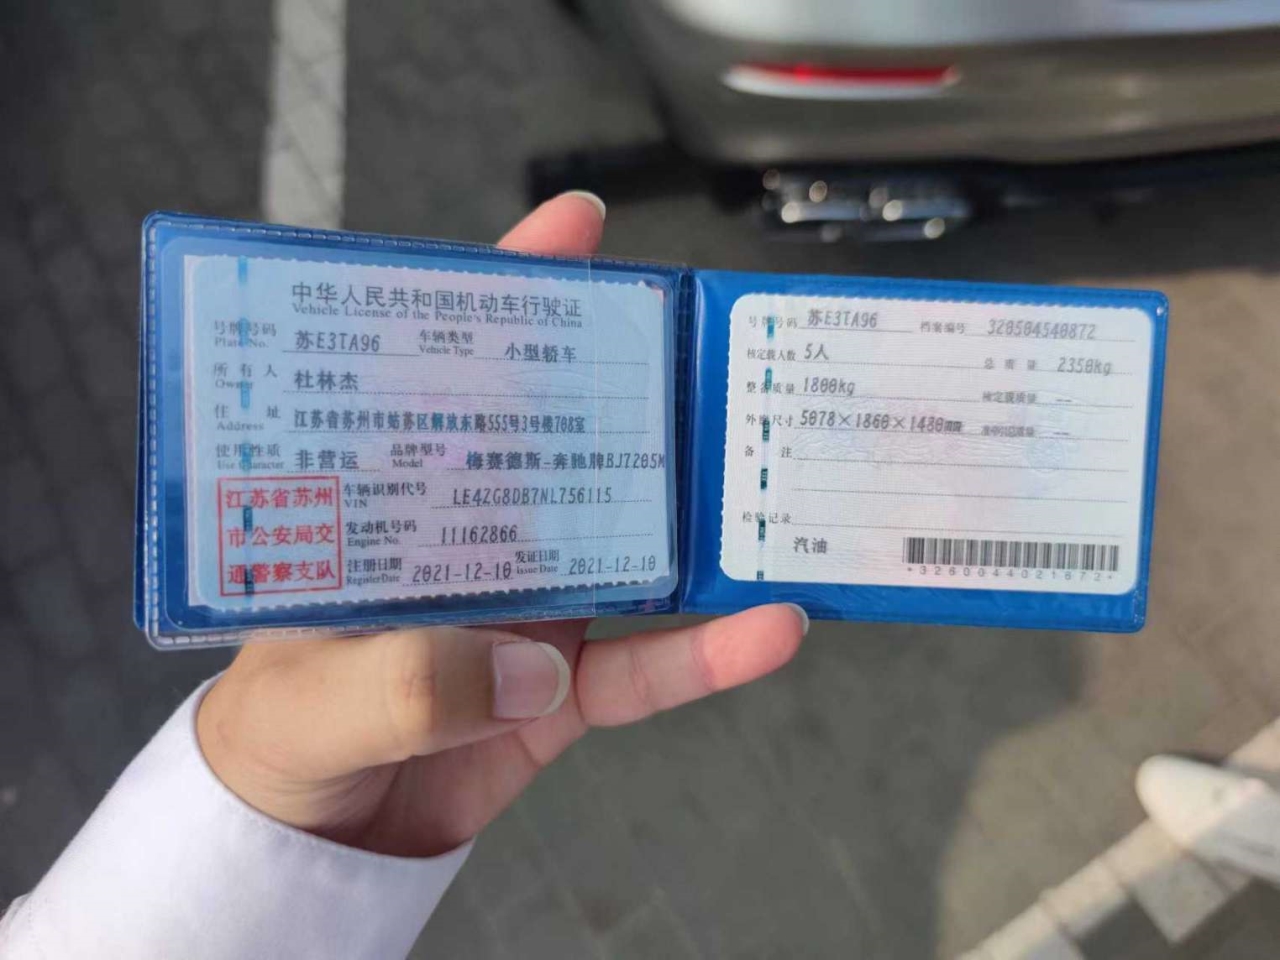 中华人民共和国机动车行驶证
Vehicle License of the People's Republic of China
号牌号码 苏E3TA96 车辆类型 小型轿车
Plate No. Vehicle Type
所有人 杜林杰
Owner
住址 江苏省苏州市姑苏区解放东路555号3号楼708室
Address
使用性质 非营运 品牌型号 梅赛德斯-奔驰牌BJ7205M
Use Character Model
江苏省苏州
市公安局交
通警察支队
车辆识别代号 LE4ZG8DB7NL756115
VIN
发动机号码 11162866
Engine No.
注册日期 2021-12-10 发证日期 2021-12-10
Register Date Issue Date
号牌号码 苏E3TA96 档案编号 320504540872
核定载人数 5人 总质量 2350kg
整备质量 1800kg 核定载质量 --
外廓尺寸 5078×1860×1480mm --
备注
检验记录
汽油
*3260044021672*